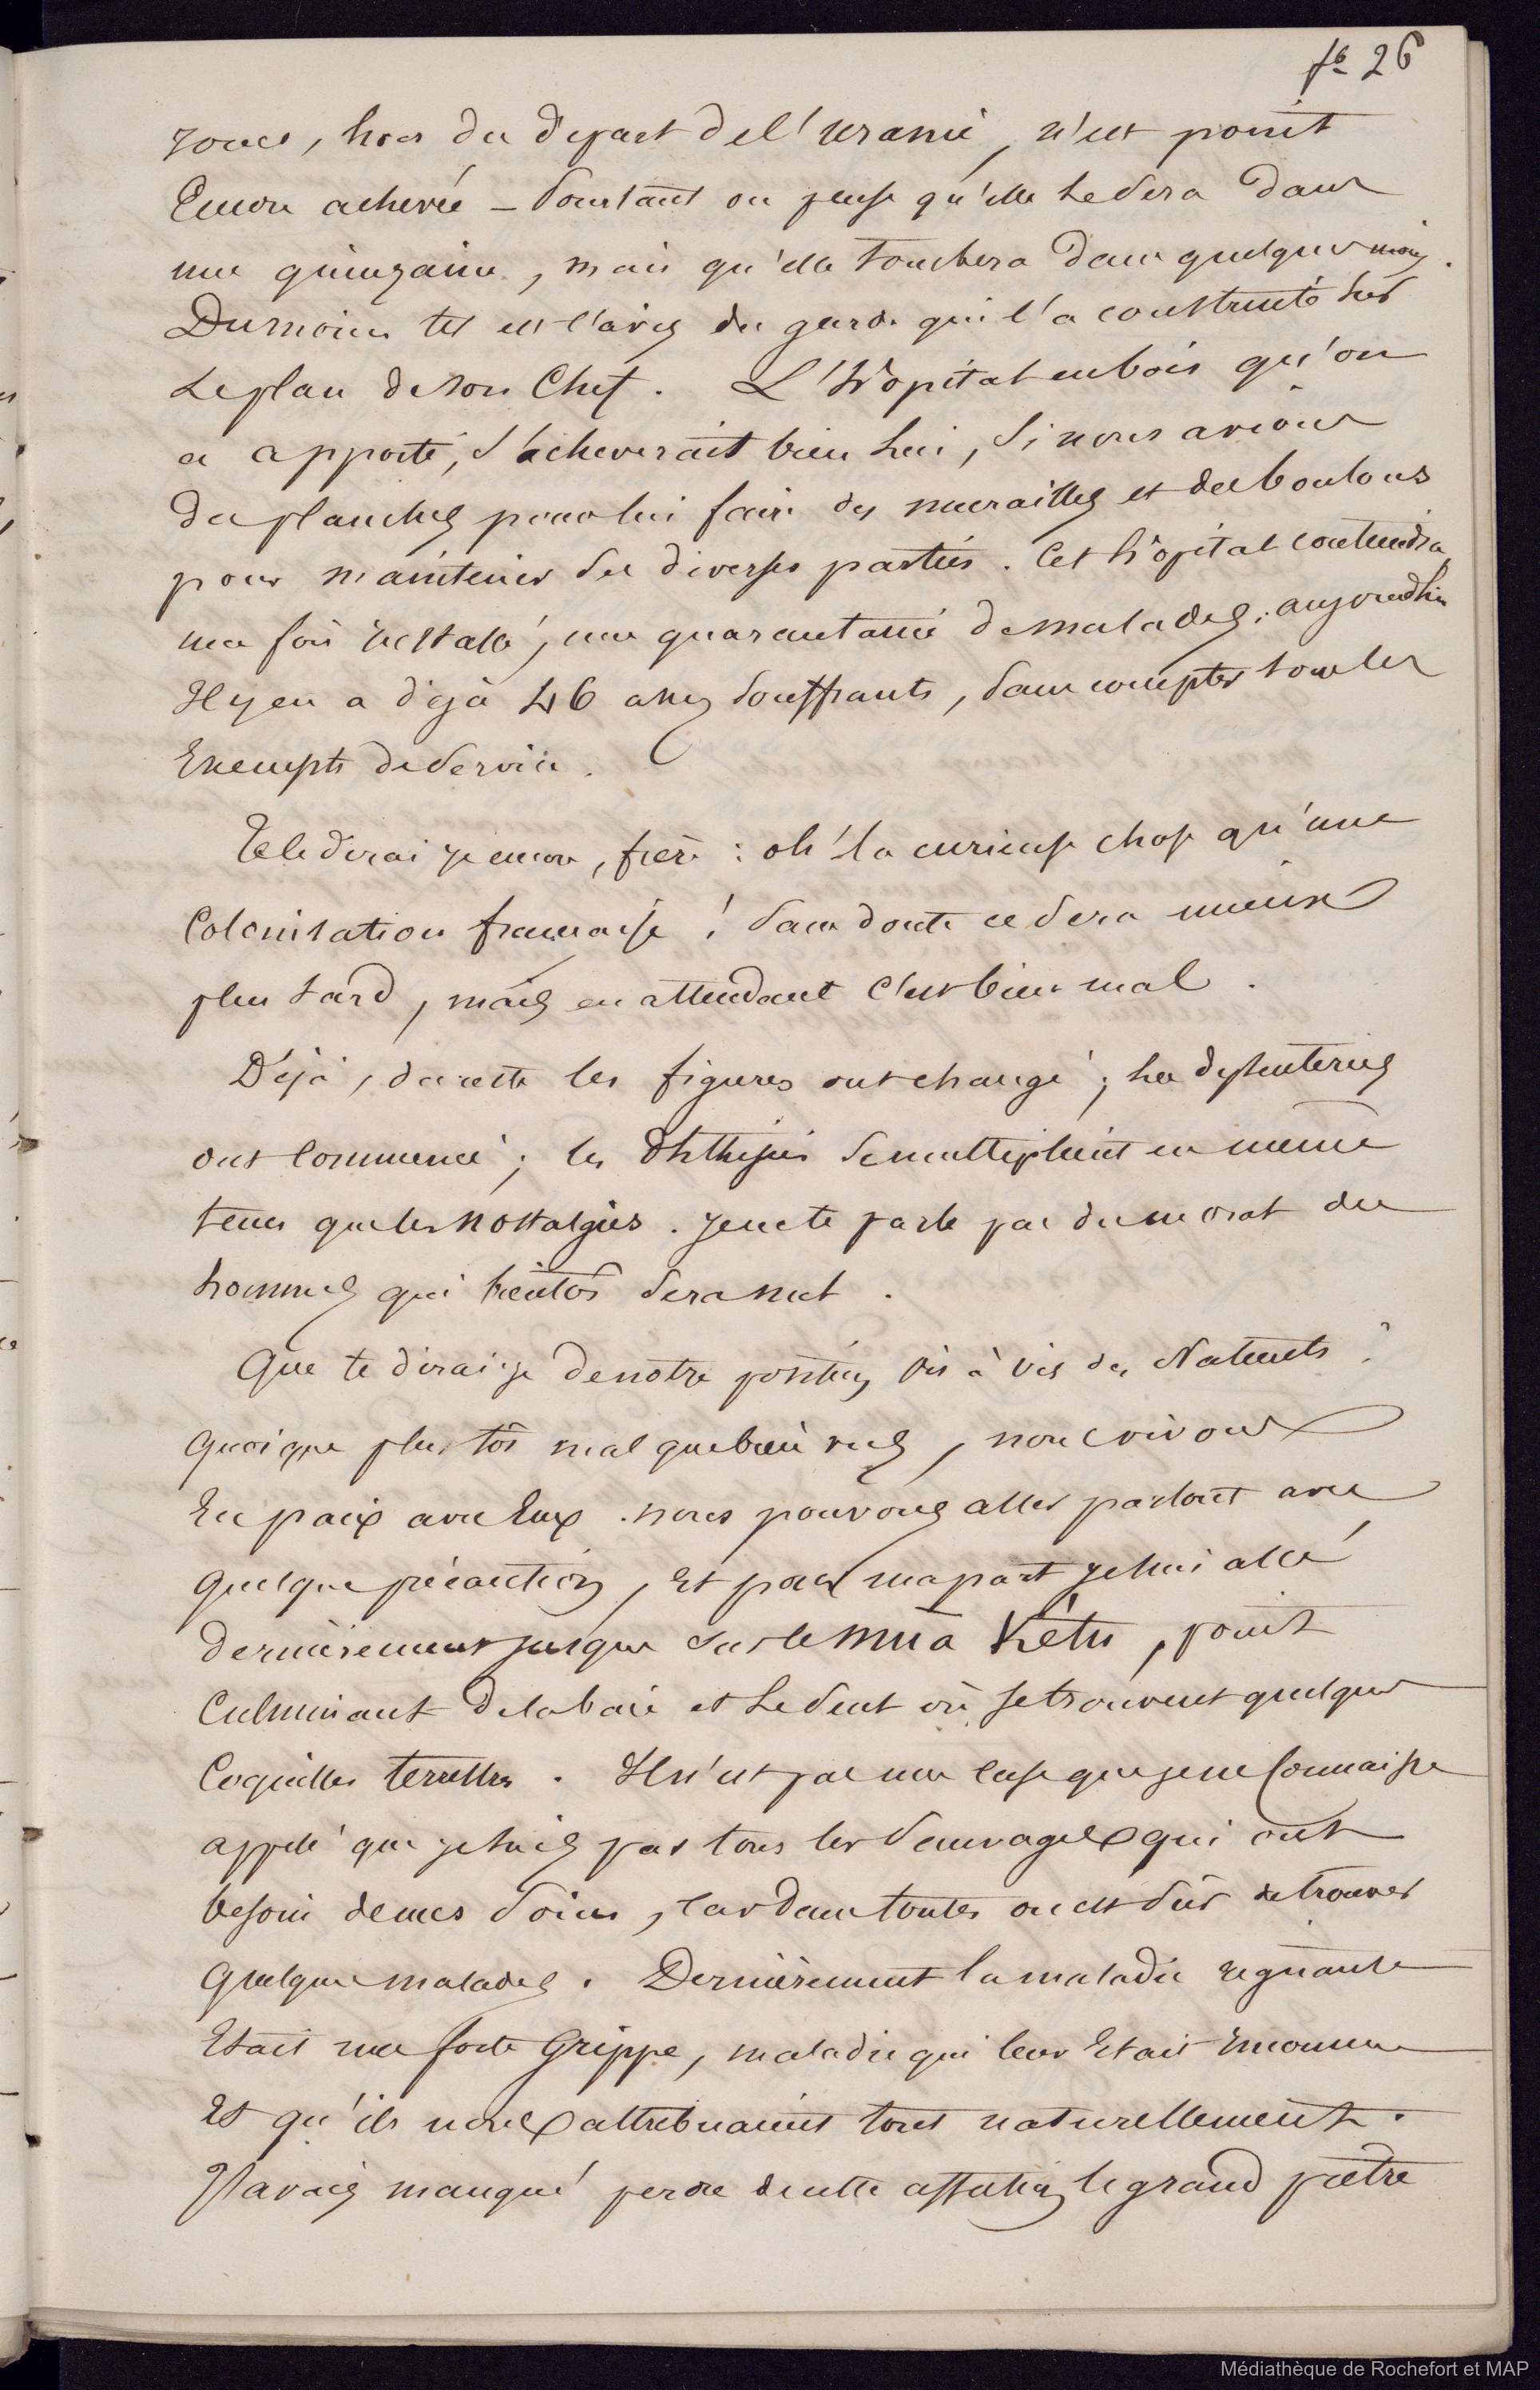 fo 26
joncs, lors du départ de l'uranie, n'est point
Encore achevée _ Pourtant on pense qu'elle le sera dans
une quinzaine, mais qu'elle tombera dans quelques mois.
Dumoins tel est l'avis du garde qui l'a construite sur
Le plan de son Chef. L'hôpital en bois qu'on
a apporté, s'acheverait bien lui, si nous avions
des planches pour lui faire des murailles et des boulons
pour maintenir ses diverses parties. Cet hôpital contiendra
une fois installé, une quarantaine de malades ; aujourd'hui
Il y en a déjà 46 assez souffrants, sans compter tous les
Exempts de service.
Te le dirai je encore, frère : oh ! la curieuse chose qu'une
Colonisation française ! sans doute ce sera mieux
plus tard, mais en attendant C'est bien mal.
Déjà, du reste les figures ont changé ; les dyssenteries
ont Commencé ; les Phthisies se multiplient en même
tems que les nostalgies. je ne te parle pas du moral des
hommes qui bientôt sera nul.
Que te dirai-je de notre position vis à vis des Naturels ?
quoique plustôt mal que bien vus, nous vivons
En paix avec Eux. nous pouvons aller partout avec
quelque précaution, Et pour ma part je suis allé
dernièrement jusque sur le mua Kétu, point
Culminant de la baie et le seul où se trouvent quelques
Coquilles terrestres. Il n'est pas une case que je ne Connaisse
appelé que je suis par tous les sauvages qui ont
besoin de mes soins, car dans toutes on est sûr de trouver
quelques malades. Dernièrement la maladie régnante
Etait une forte Grippe, maladie qui leur Etait Inconnue
Et qu'ils nous attribuaient tout naturellement.
J'avais manqué perdre de cette affection le grand prêtre
Médiathèque de Rochefort et MAP